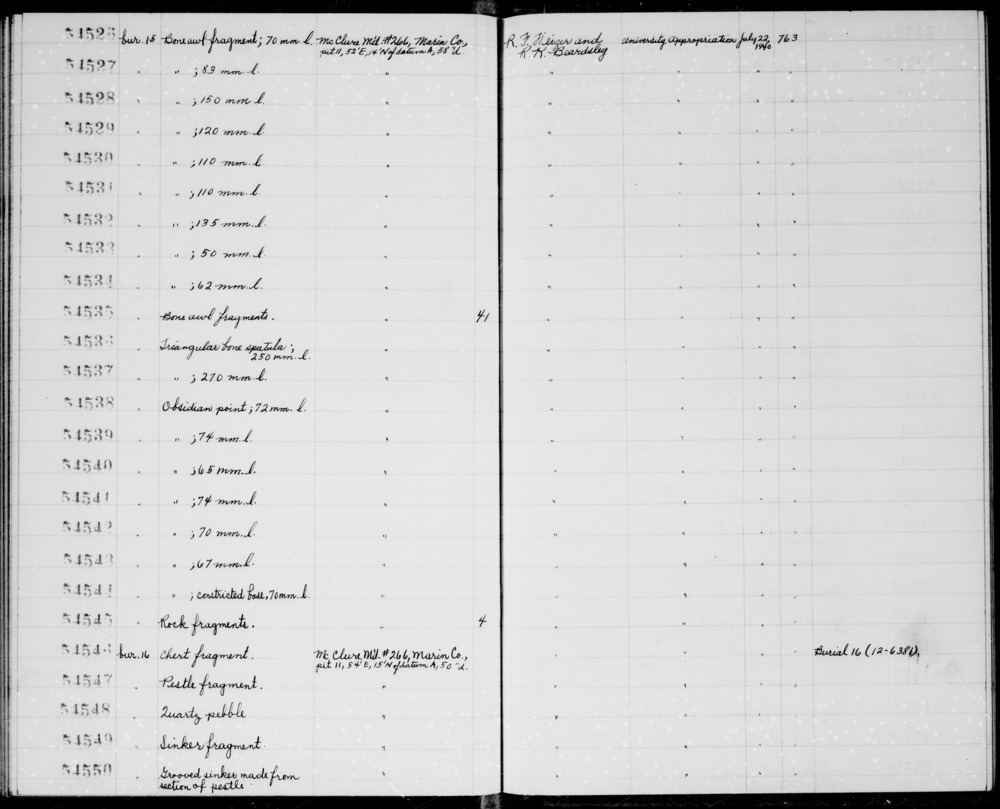 54526 bur. 15 Bone awl fragment; 70 mm. l. Mc Clure Md. #266, Marin Co., R. F. Heizer and University Appropriation July 22, 763
pit 11, 52"E, 14'N of datum A, 58"d. R. K. Beardsley 1940
54527 " " ; 83 mm. l. " " " " "
54528 " " ; 150 mm. l. " " " " "
54529 " " ; 120 mm. l. " " " " "
54530 " " ; 110 mm. l. " " " " "
54531 " " ; 110 mm. l. " " " " "
54532 " " ; 135 mm. l. " " " " "
54533 " " ; 50 mm. l. " " " " "
54534 " " ; 62 mm. l. " " " " "
54535 " Bone awl fragments. " 41 " " " "
54536 " Triangular bone spatula; " " " " "
250 mm. l.
54537 " " ; 270 mm. l. " " " " "
54538 " Obsidian point; 72 mm. l. " " " " "
54539 " " ; 74 mm. l. " " " " "
54540 " " ; 65 mm. l. " " " " "
54541 " " ; 74 mm. l. " " " " "
54542 " " ; 70 mm. l. " " " " "
54543 " " ; 67 mm. l. " " " " "
54544 " " ; constricted base, 70 mm. l. " " " " "
54545 " Rock fragments. " 4 " " " "
54546 bur. 16 Chert fragment. Mc Clure Md. #266, Marin Co., " " " " Burial 16 (12-6381),
pit 11, 54"E, 15'N of datum A, 50"d.
54547 " Pestle fragment. " " " " "
54548 " Quartz pebble " " " " "
54549 " Sinker fragment. " " " " "
54550 " Grooved sinker made from " " " " "
section of pestle.